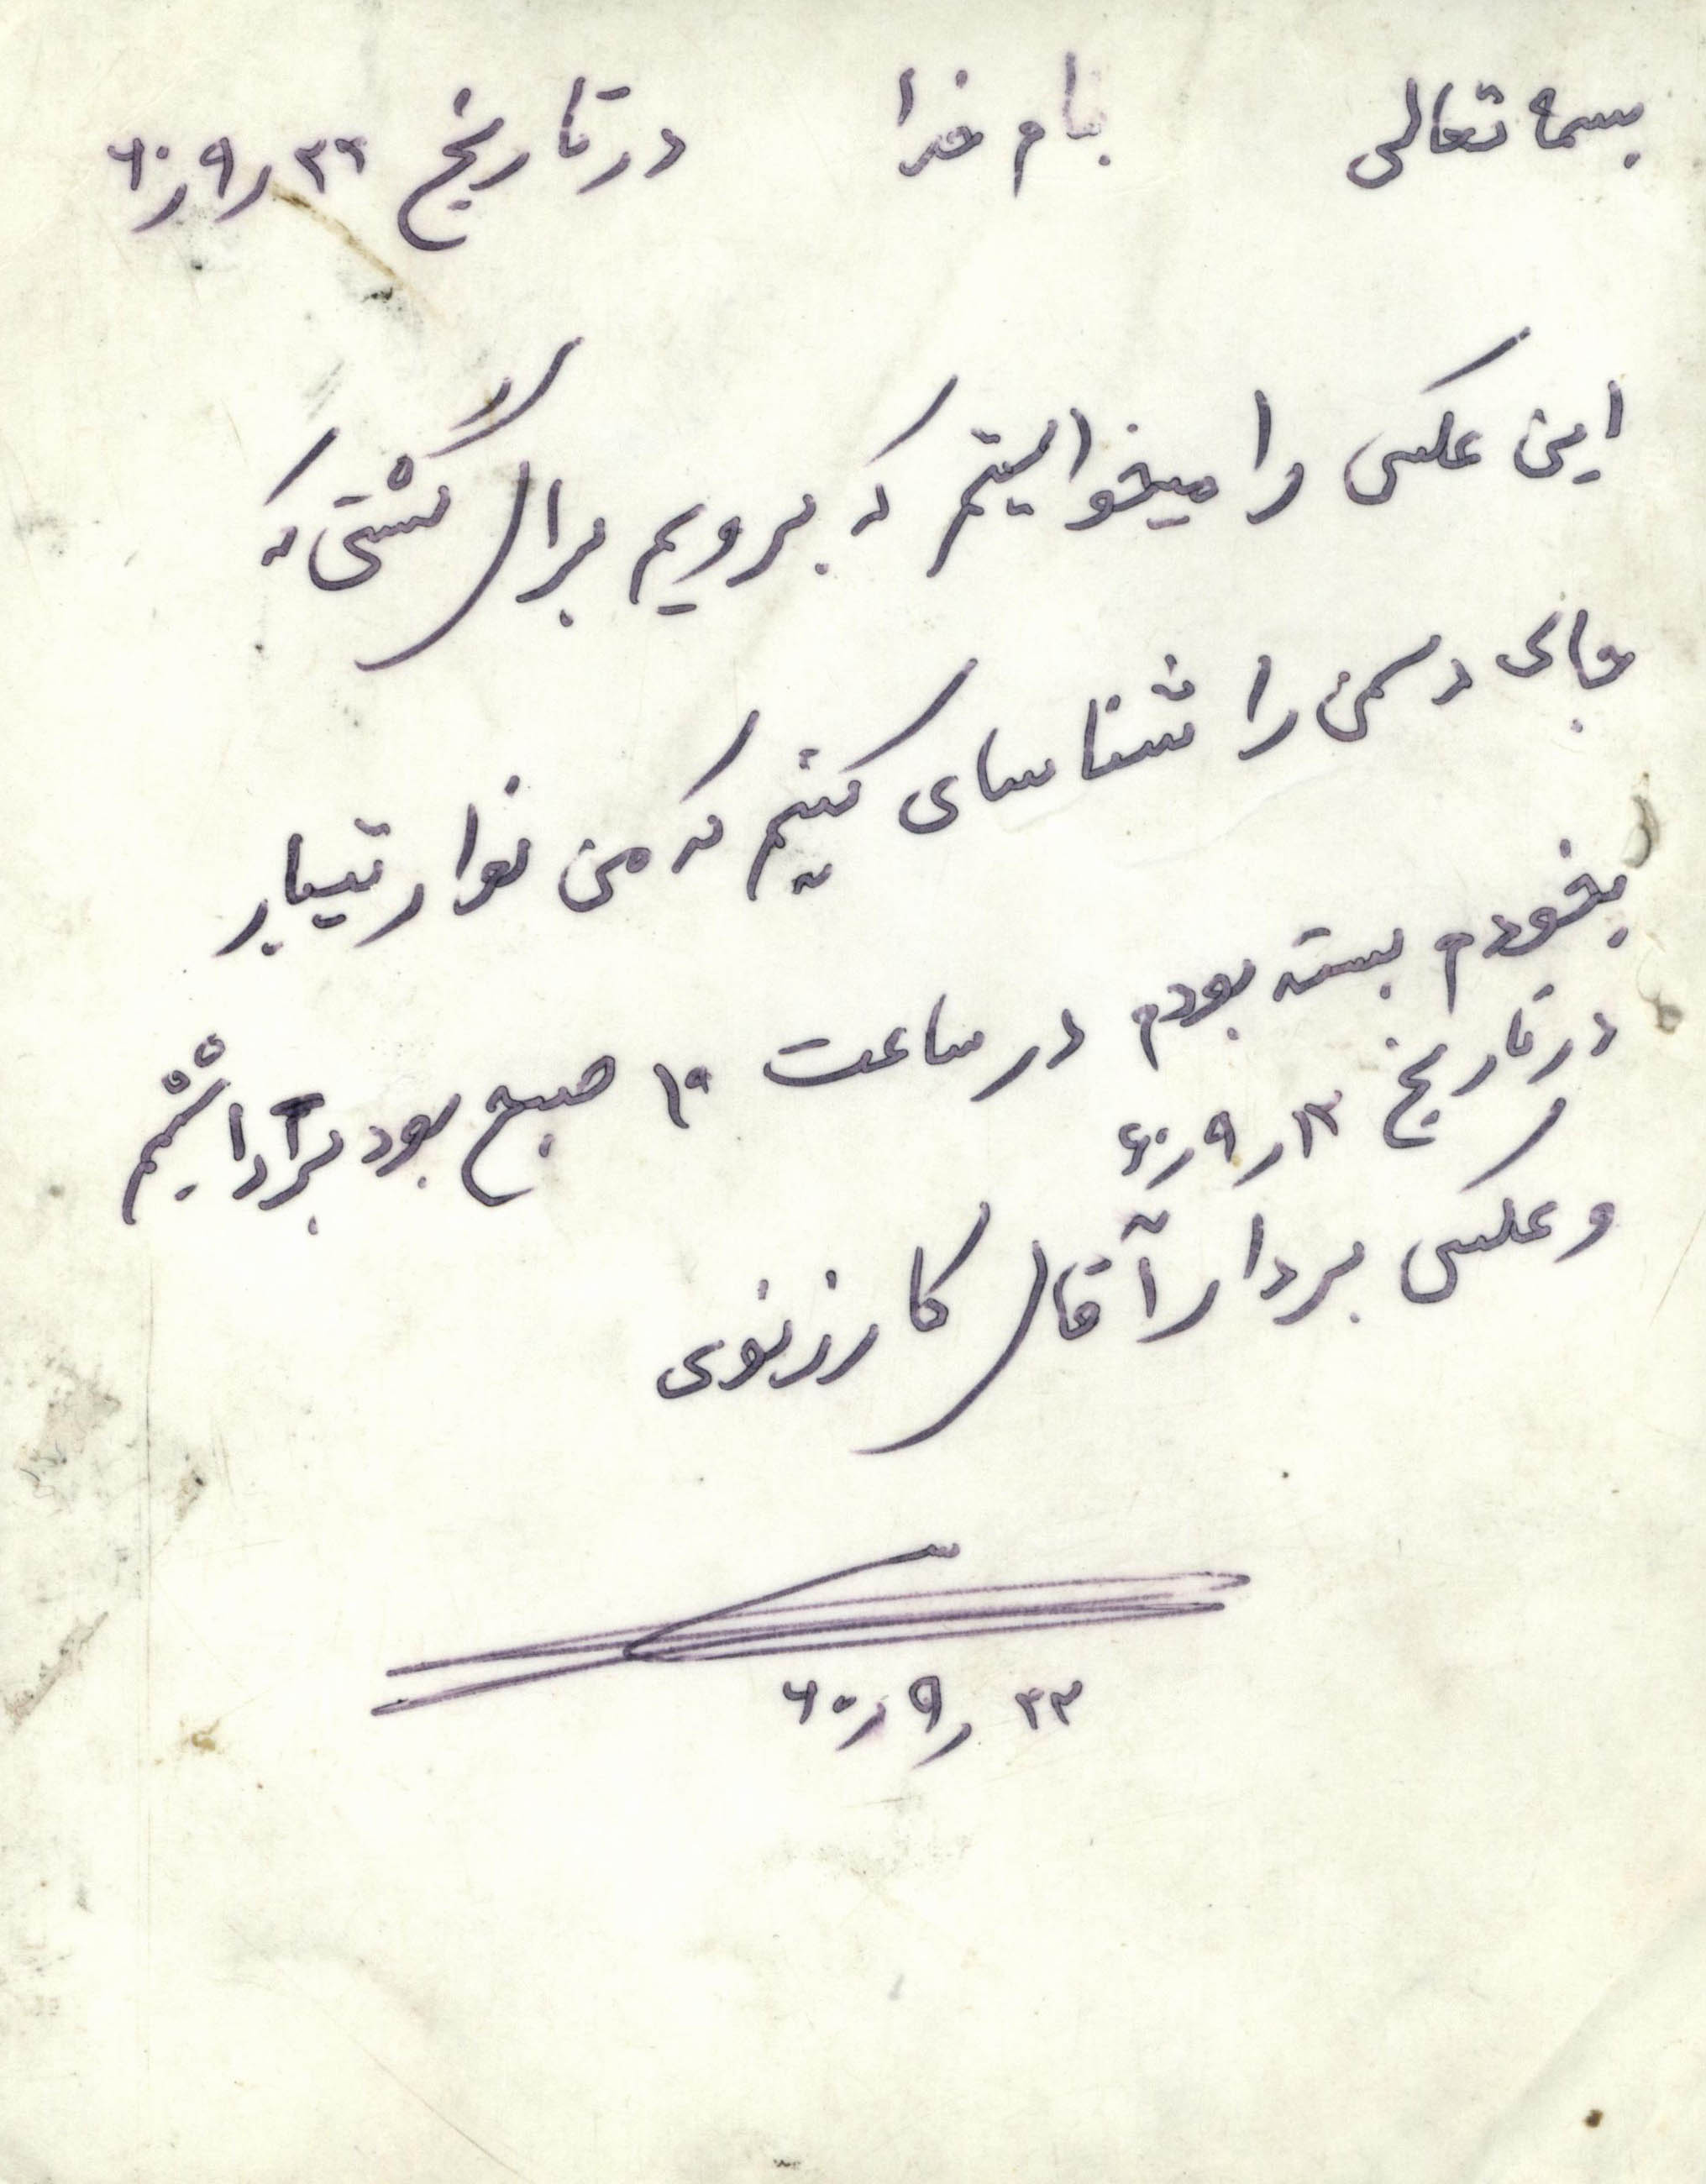 بسمه تعالی بنام خدا در تاریخ ۲۳ر۹ر۶۰
این عکس را میخواستیم که برویم برای گشتی که
جای دسمن را شناسای کنیم که من نوار تیربار
بخودم بسته بودم در ساعت ۱۰ صبح بود برداشتیم
در تاریخ ۱۳ر۹ر۶۰
و عکس بردار آقای کارزنوی
۲۳ر۹ر۶۰